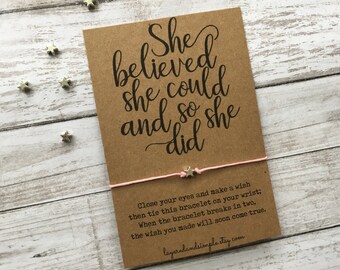 She
believed
she could
and so she
did
Close your eyes and make a wish
then tie this bracelet on your wrist;
When the bracelet breaks in two,
the wish you made will soon come true.